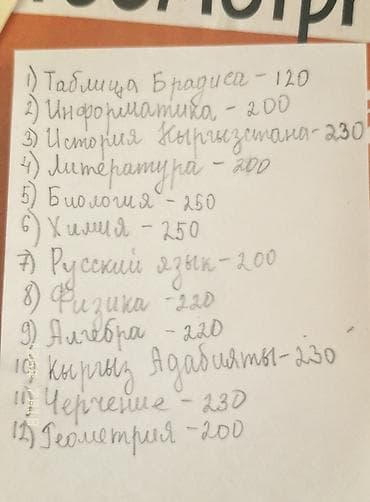 ГЕОМЕТРИ
1) Таблица Брадиса - 120
2) Информатика - 200
3) История Кыргызстана - 230
4) Литература - 200
5) Биология - 250
6) Химия - 250
7) Русский язык - 200
8) Физика - 220
9) Алгебра - 220
10 Кыргыз Адабияты - 230
11) Черчение - 230
12) Геометрия - 200